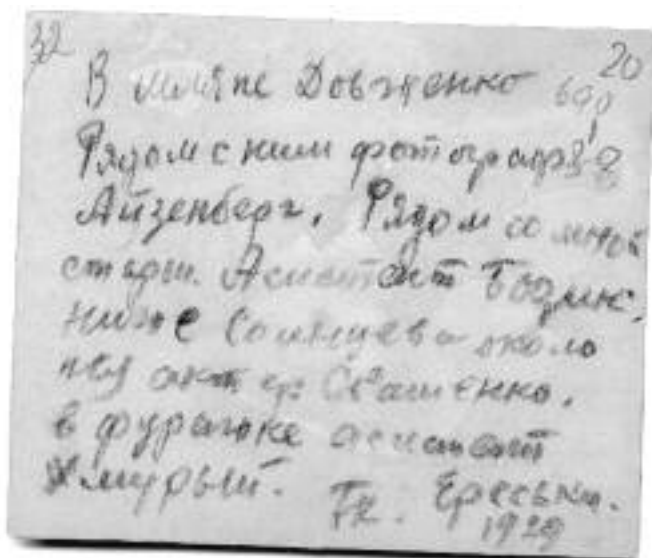 32 20
В шляпе Довженко
Рядом с ним фотограф
Айзенберг. Рядом со мной
старш. Асистент Бодик.
ниже Солнцева около
неё актер Свашенко.
в фуражке асистент
Хмурый. Ереськи.
1929